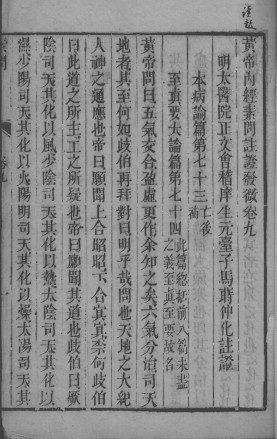 黃帝內經素問註證發微卷九
明太醫院正文會稽庠生元臺子馬蒔仲化註證
本病論篇第七十三亡後補
至眞要大論篇第七十四此篇總括前八篇未盡之義至眞至要故名
黃帝問曰五氣交合盈虛更作余知之矣六氣分治司天
地者其至何如歧伯再拜對曰明乎哉問也天地之大紀
人神之通應也帝曰願聞上合昭昭下合冥冥柰何歧伯
曰此道之所主工之所疑也帝曰願聞其道也歧伯曰厥
陰司天其化以風少陰司天其化以熱太陰司天其化以
濕少陽司天其化以火陽明司天其化以燥太陽司天其
卷九